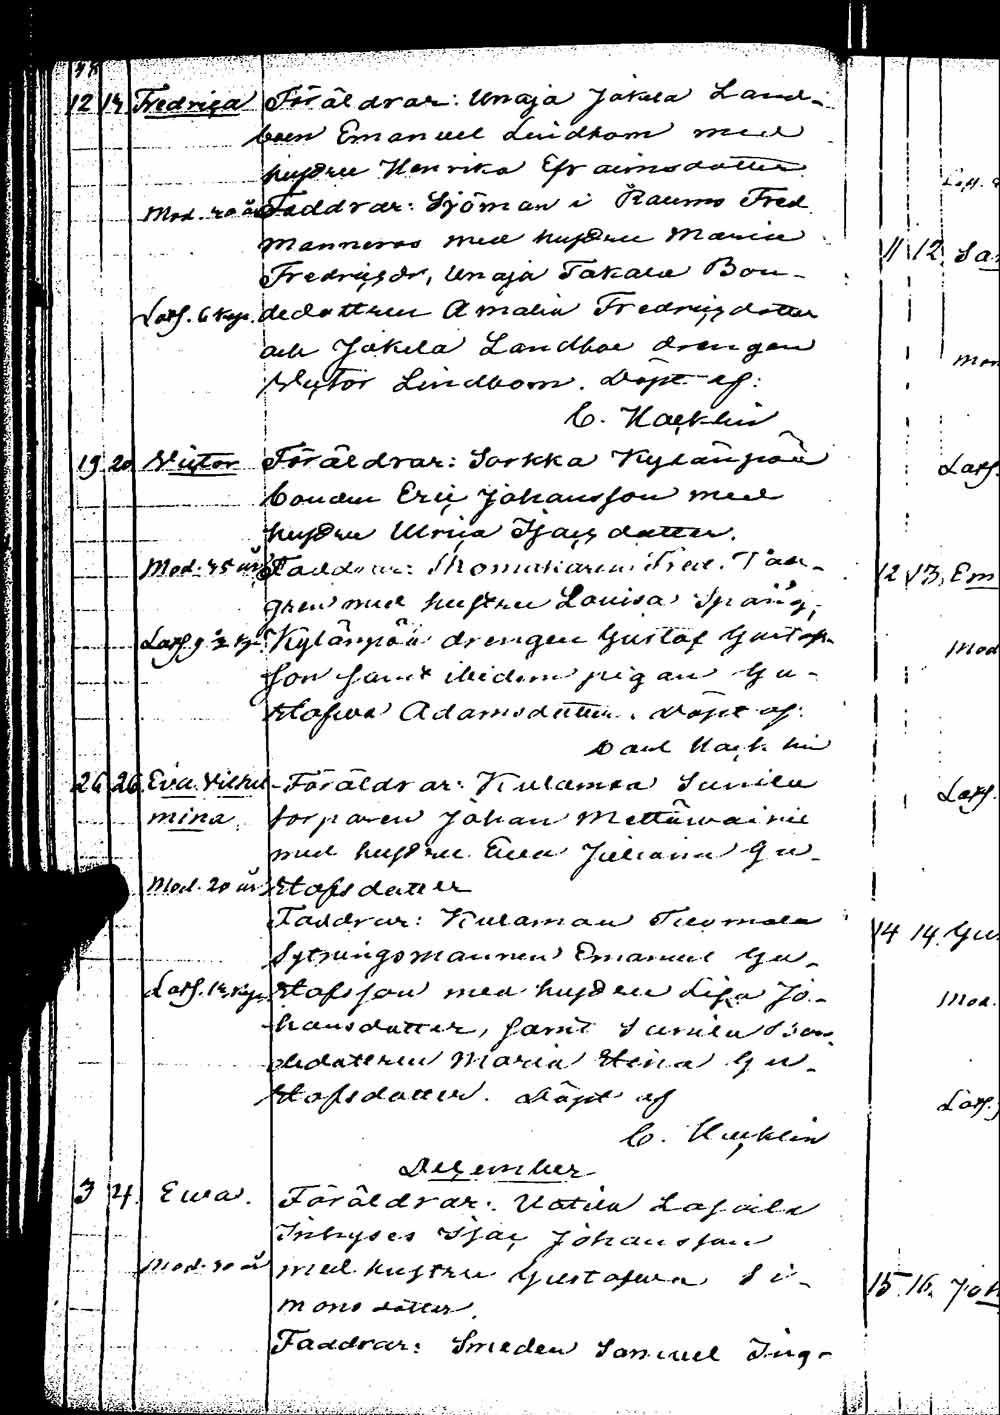 12 14 Fredrica Föräldrar: Unaja Jakola Land-
boen Emanuel Lindbom med
hustru Henrika Efraimsdotter
Mod. 40 år Faddrar: Sjöman i Raumo Fred.
Manneros med hustru Maria
Fredricsdr, Unaja Takala Bon-
Lösf. 6 kop. dedottren Amalia Fredricsdotter
och Jakola Landboe drengen
Victor Lindbom. Döpt af:
C. Hacklin
19 20 Victor Föräldrar: Sorkka Kylänpää
bonden Eric Johansson med
hustru Ulrica Isacsdotter.
Mod. 45 år Faddrar: Skomakaren Fred. Tån-
gren med hustru Lovisa Spång,
Kylänpää drengen Gustaf Gustafs-
son samt ibidem pigan Gu-
stafva Adamsdotter. Döpt af:
Carl Hacklin
26 26 Eva Vilhel- Föräldrar: Kulamaa Sunila
mina. torparen Johan Mettäwainie
med hustru Eva Juliana Gu-
Mod. 20 år stafsdotter
Faddrar: Kulamaa Tuomola
Sytningsmannen Emanuel Gu-
stafsson med hustru Lisa Jo-
hansdotter, samt Sunila Bon-
dedottren Maria Stina Gu-
stafsdotter. Döpt af
C. Hacklin
December
3 4 Ewa. Föräldrar: Uotila
Inhyses Isac Johansson
Mod. 30 år med hustru Gustafwa Si-
monsdotter.
Faddrar: Smeden Samuel Ing-
11 12
12 13. Em
Mod
14 14 Gus
Mod.
15 16. Joh